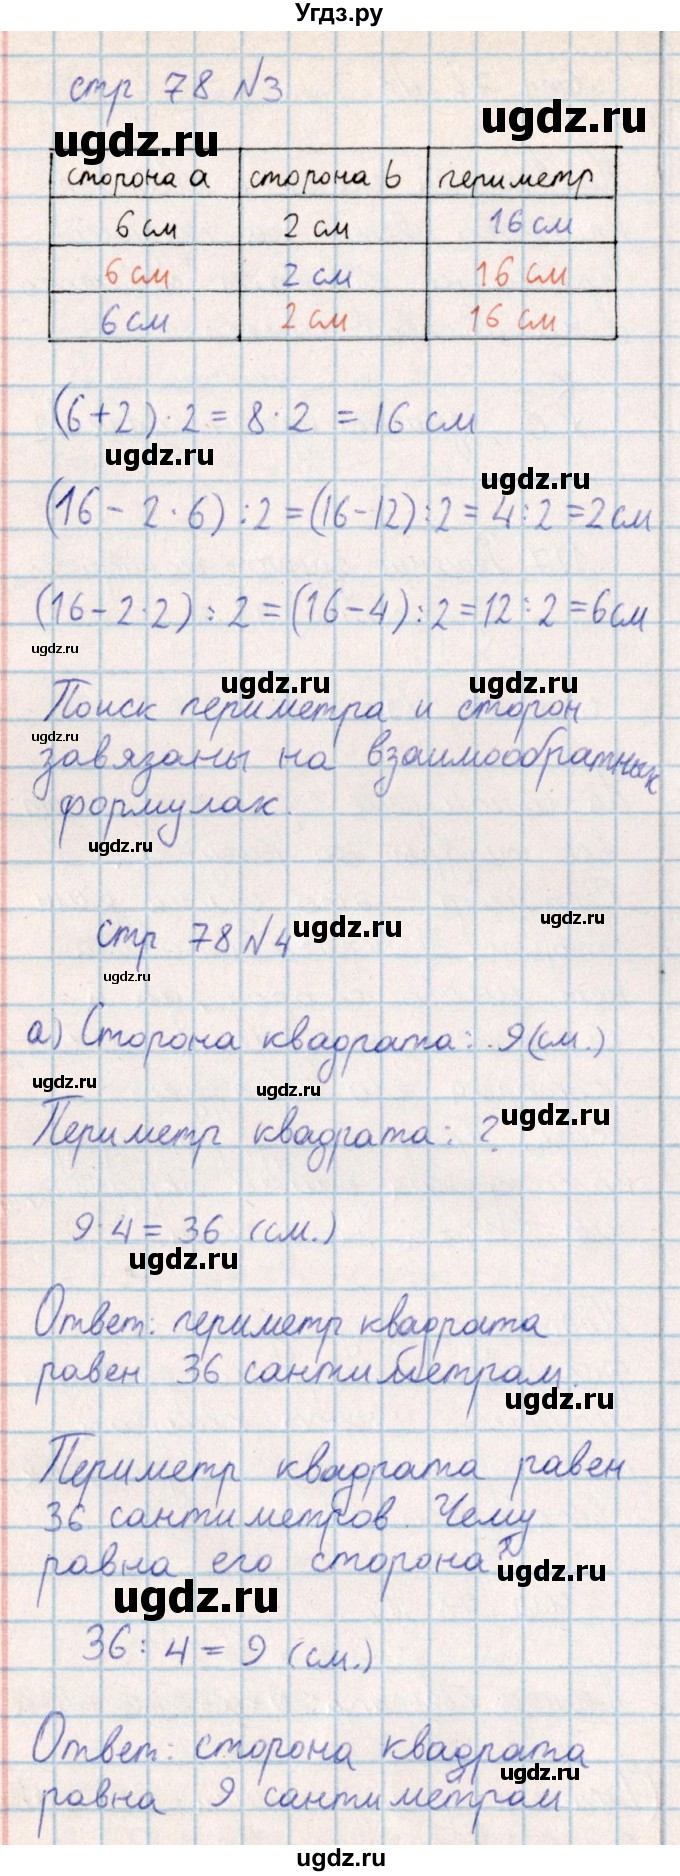 Угдз.ру
стр 78 №3
ugdz.ru
ugdz.ru
сторона a сторона b периметр
6 см 2 см 16 см
6 см 2 см 16 см
6 см 2 см 16 см
(6+2)·2=8·2=16 см
ugdz.ru
ugdz.ru
(16-2·6):2=(16-12):2=4:2=2см
(16-2·2):2=(16-4):2=12:2=6см
ugdz.ru
ugdz.ru
ugdz.ru
Поиск периметра и сторон
ugdz.ru
завязаны на взаимообратных
формулах.
ugdz.ru
ugdz.ru
стр 78 №4
ugdz.ru
ugdz.ru
а) Сторона квадрата: 9(см.)
ugdz.ru
ugdz.ru
ugdz.ru
Периметр квадрата: ?
9·4=36 (см.)
ugdz.ru
Ответ: периметр квадрата
равен 36 сантиметрам.
ugdz.ru
Периметр квадрата равен
36 сантиметров. Чему
равна его сторона?
ugdz.ru
ugdz.ru
36:4=9 (см.)
Ответ: сторона квадрата
ugdz.ru
равна 9 сантиметрам
ugdz.ru